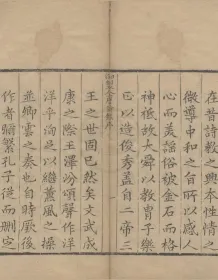 在昔詩教之興本性情之
微導中和之旨所以感人
心而美謠俗被金石而格
神祇故大舜以教胄子樂
正以造俊秀蓋自二帝三
王之世固已然矣文武成
康之際王澤洽頌聲作洋
洋乎以薰風之操
並卿雲之奏也自時厥後
作者彌繁孔子從而刪定